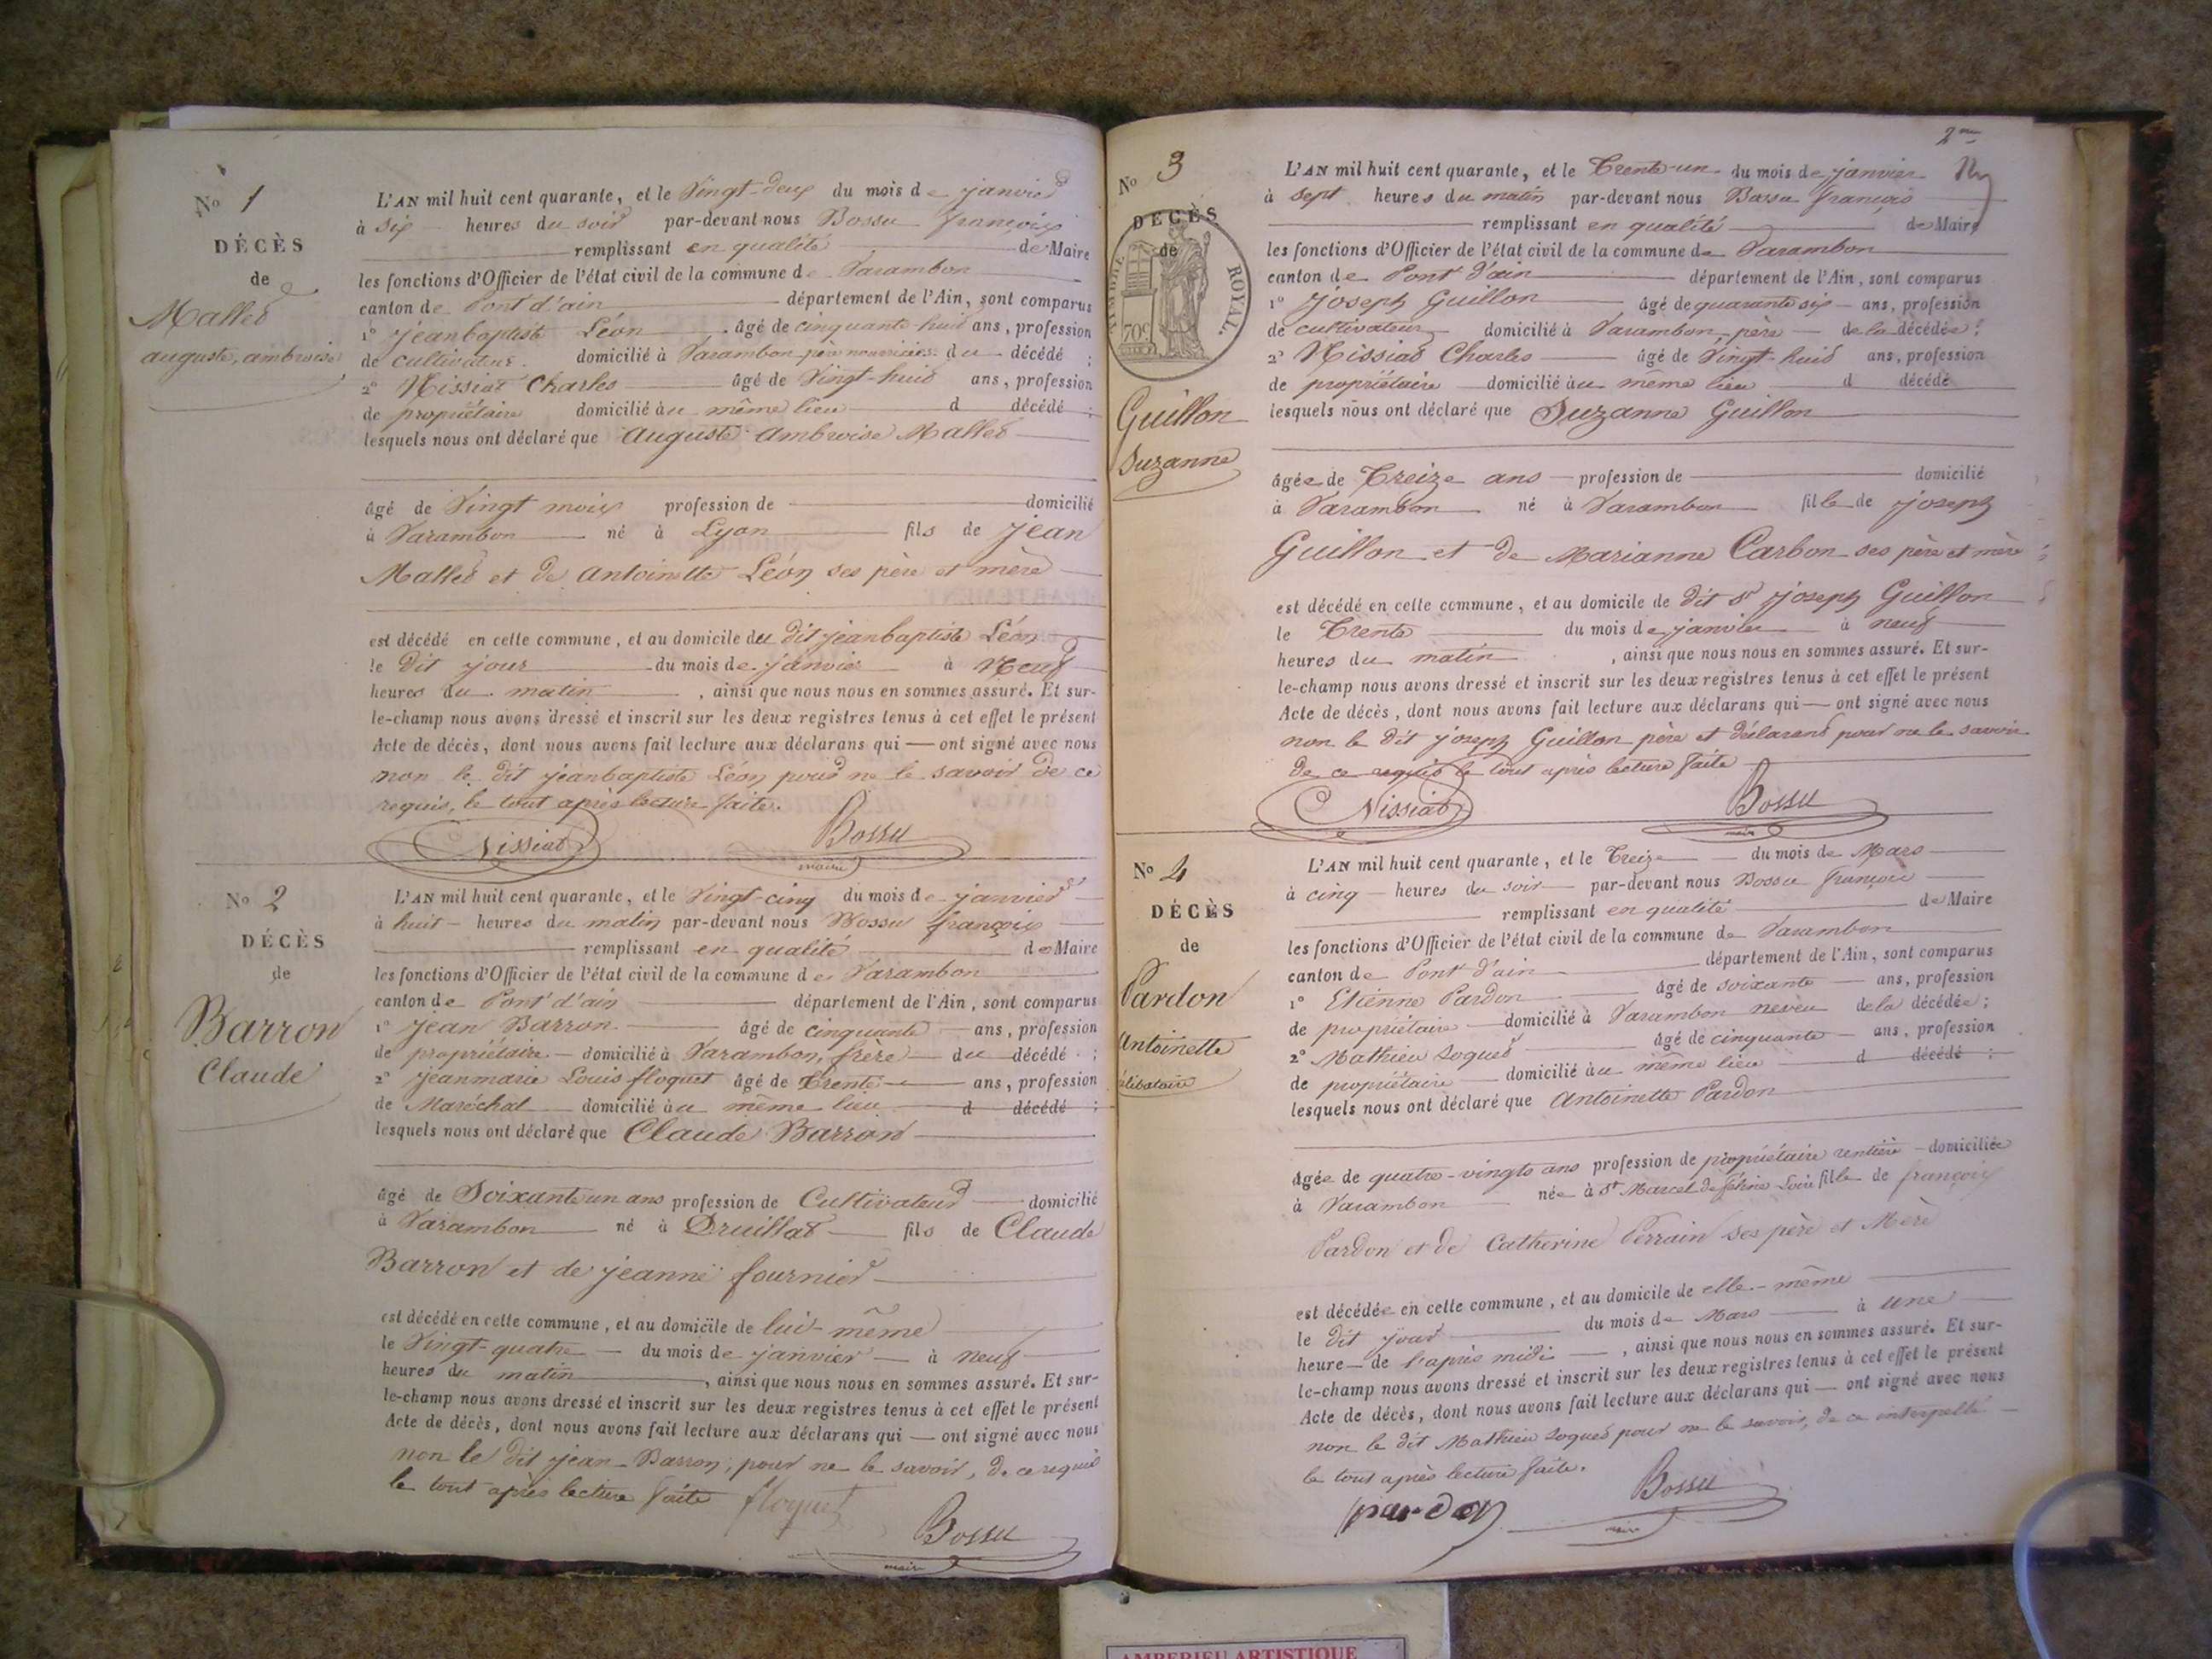 No 1
DÉCÈS
de
Mallet
auguste, ambroise
L'AN mil huit cent quarante, et le Vingt-deux du mois de janvier
à six heures du soir par-devant nous Bossu françois
remplissant en qualité de Maire
les fonctions d'Officier de l'état civil de la commune de Varambon
canton de Pont d'ain département de l'Ain, sont comparus
1° jeanbaptiste Léon âgé de cinquante huit ans, profession
de cultivateur domicilié à Varambon père nourricier du décédé ;
2° Nissiat Charles âgé de Vingt-huit ans, profession
de propriétaire domicilié au même lieu d décédé ;
lesquels nous ont déclaré que Auguste Ambroise Mallet
âgé de Vingt mois profession de domicilié
à Varambon né à Lyon fils de Jean
Mallet et de Antoinette Léon ses père et mère
est décédé en cette commune, et au domicile du dit jeanbaptiste Léon
le dit jour du mois de janvier à Neuf
heures du matin , ainsi que nous nous en sommes assuré. Et sur-
le-champ nous avons dressé et inscrit sur les deux registres tenus à cet effet le présent
Acte de décès, dont nous avons fait lecture aux déclarans qui — ont signé avec nous
non le dit jeanbaptiste Léon pour ne le savoir de ce
requis, le tout après lecture faite.
Nissiat Bossu
maire
No 2
DÉCÈS
de
Barron
Claude
L'AN mil huit cent quarante, et le Vingt-cinq du mois de janvier
à huit heures du matin par-devant nous Bossu françois
remplissant en qualité de Maire
les fonctions d'Officier de l'état civil de la commune de Varambon
canton de Pont d'ain département de l'Ain, sont comparus
1° Jean Barron âgé de cinquante ans, profession
de propriétaire domicilié à Varambon, frère du décédé ;
2° jeanmarie Louis floquet âgé de Trente ans, profession
de Maréchal domicilié au même lieu d décédé ;
lesquels nous ont déclaré que Claude Barron
âgé de Soixante un ans profession de Cultivateur domicilié
à Varambon né à Druillat fils de Claude
Barron et de jeanne fournier
est décédé en cette commune, et au domicile de lui-même
le Vingt-quatre du mois de janvier à neuf
heures du matin , ainsi que nous nous en sommes assuré. Et sur-
le-champ nous avons dressé et inscrit sur les deux registres tenus à cet effet le présent
Acte de décès, dont nous avons fait lecture aux déclarans qui — ont signé avec nous
non le dit jean Barron, pour ne le savoir, de ce requis
le tout après lecture faite floquet
Bossu
maire
2me
No 3
DÉCÈS
de
TIMBRE ROYAL.
70c
Guillon
Suzanne
L'AN mil huit cent quarante, et le Trente-un du mois de janvier
à sept heures du matin par-devant nous Bossu françois
remplissant en qualité de Maire
les fonctions d'Officier de l'état civil de la commune de Varambon
canton de Pont d'ain département de l'Ain, sont comparus
1° Joseph Guillon âgé de quarante six ans, profession
de cultivateur domicilié à Varambon, père de la décédée ;
2° Nissiat Charles âgé de Vingt-huit ans, profession
de propriétaire domicilié au même lieu d décédé
lesquels nous ont déclaré que Suzanne Guillon
âgée de Treize ans profession de domicilié
à Varambon né à Varambon fille de joseph
Guillon et de Marianne Carbon ses père et mère
est décédé en cette commune, et au domicile de dit st joseph Guillon
le Trente du mois de janvier à neuf
heures du matin , ainsi que nous nous en sommes assuré. Et sur-
le-champ nous avons dressé et inscrit sur les deux registres tenus à cet effet le présent
Acte de décès, dont nous avons fait lecture aux déclarans qui — ont signé avec nous
non le dit joseph Guillon père et déclarant pour ne le savoir
de ce requis le tout après lecture faite
Nissiat Bossu
maire
No 4
DÉCÈS
de
Pardon
Antoinette
célibataire
L'AN mil huit cent quarante, et le Treize du mois de Mars
à cinq heures du soir par-devant nous Bossu françois
remplissant en qualité de Maire
les fonctions d'Officier de l'état civil de la commune de Varambon
canton de Pont d'ain département de l'Ain, sont comparus
1° Etienne Pardon âgé de soixante ans, profession
de propriétaire domicilié à Varambon neveu de la décédée ;
2° Mathieu Loques âgé de cinquante ans, profession
de propriétaire domicilié au même lieu d décédé ;
lesquels nous ont déclaré que Antoinette Pardon
âgée de quatre-vingts ans profession de propriétaire rentière domiciliée
à Varambon née à St Marcel de Loire fille de françois
Pardon et de Catherine Perrain ses père et Mère
est décédée en cette commune, et au domicile de elle-même
le dit jour du mois de Mars à une
heure de l'après midi , ainsi que nous nous en sommes assuré. Et sur-
le-champ nous avons dressé et inscrit sur les deux registres tenus à cet effet le présent
Acte de décès, dont nous avons fait lecture aux déclarans qui — ont signé avec nous
non le dit Mathieu Loques pour ne le savoir, de ce interpellé
le tout après lecture faite.
pardon Bossu
maire
AMBERIEU ARTISTIQUE